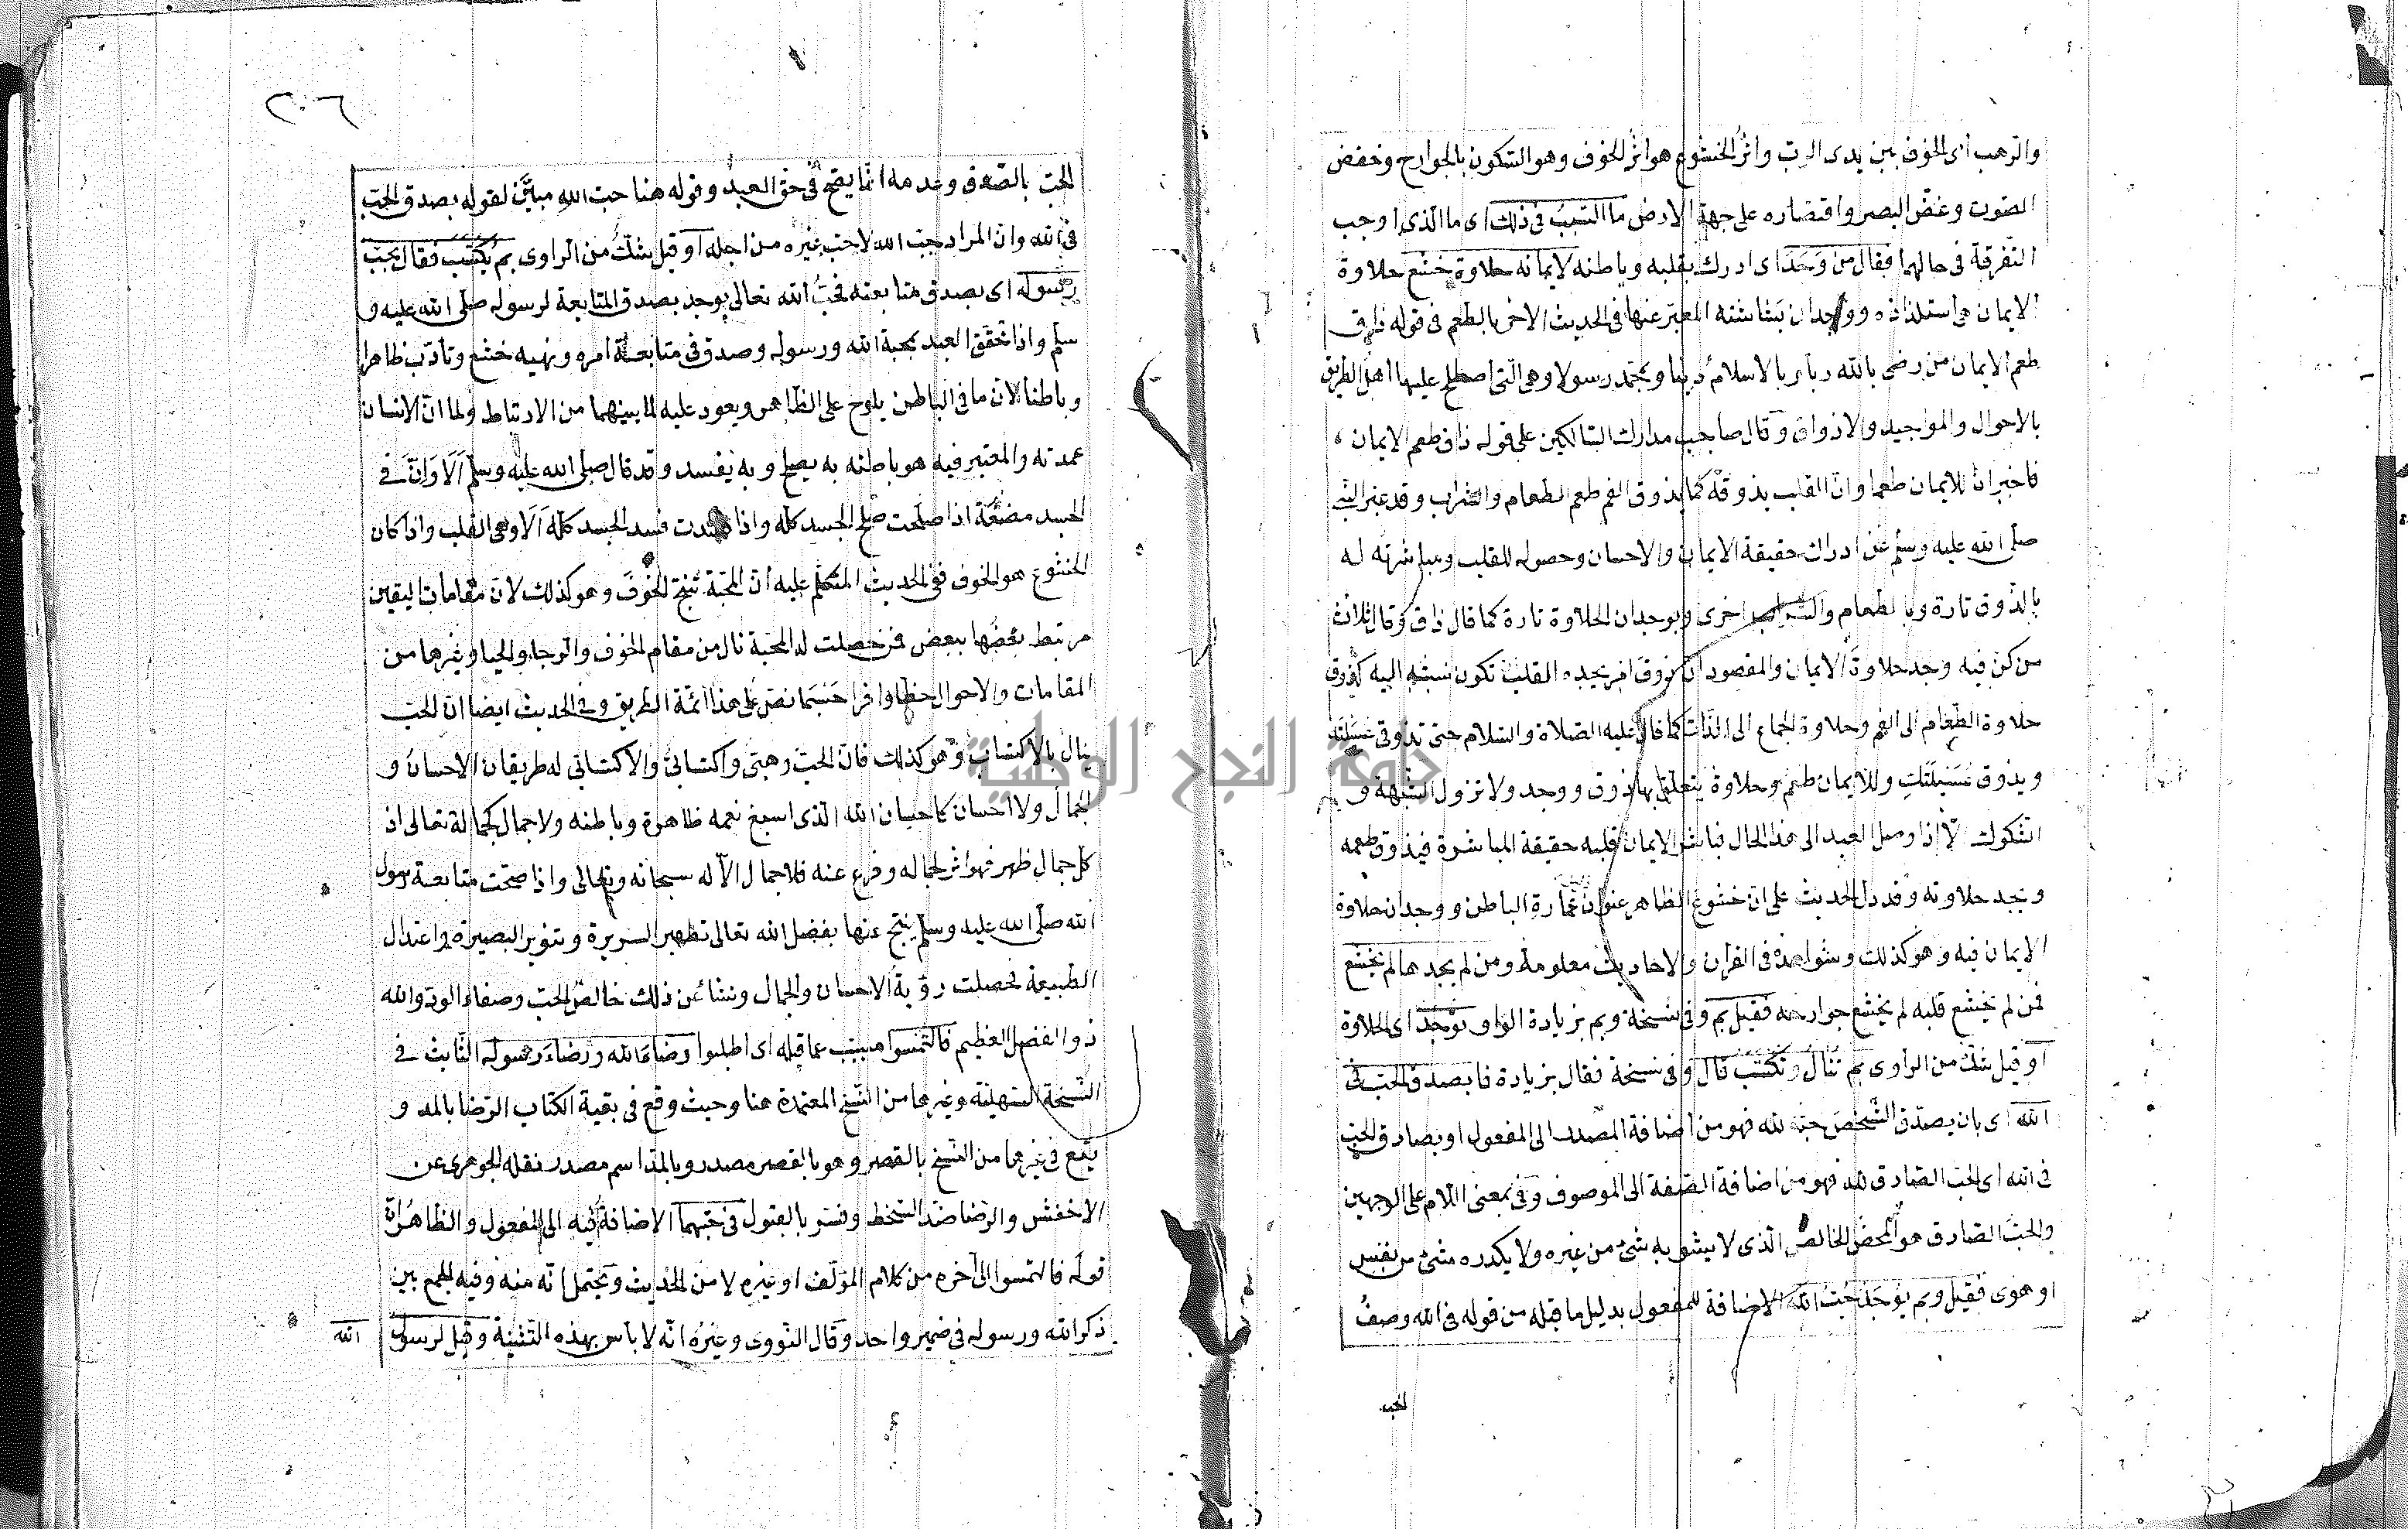 والرهب اى الخوف بين يدى الرب واثر الخشوع هو اثر الخوف وهو السكون بالجوارح وخفض
الصوت وغض البصر واقتصاره على جهة الارض ما السبب فى ذلك اى ما الذى اوجب
التفرقة فى حالهما فقال من وَجَدَ اى ادرك بقلبه وباطنه لايمانه حلاوة خشع حلاوة
الايمان هى استلذاذه ووجدان بشاشته المعبر عنها فى الحديث الاخر بالطعم فى قوله ذاق
طعم الايمان من رضى بالله ربا وبالاسلام دينا وبمحمد رسولا وهى التى اصطلح عليها اهل الطريق
بالاحوال والمواجيد والاذواق وقال صاحب مدارك السالكين على قوله ذاق طعم الايمان
فاخبر ان للايمان طعما وان القلب يذوقه كما يذوق الفم طعم الطعام والشراب وقد عبر النبى
صلى الله عليه وسلم عن ادراك حقيقة الايمان والاحسان وحصوله للقلب ومباشرته له
بالذوق تارة وبالطعام والشراب اخرى وبوجدان الحلاوة تارة كما قال ذاق وقال ثلاث
من كن فيه وجد حلاوة الايمان والمقصود ان ذوق امر يجده القلب تكون نسبته اليه كذوق
حلاوة الطعام الى الفم وحلاوة الجماع الى الذات كما قال عليه الصلاة والسلام حتى تذوقى عسيلته
ويذوق عسيلتك وللايمان طعم وحلاوة يتعلق بها ذوق ووجد ولا تزول الشبهة و
الشكوك الا اذا وصل العبد الى هذا الحال فباشر الايمان قلبه حقيقة المباشرة فيذوق طعمه
ويجد حلاوته وقد دل الحديث على ان خشوع الظاهر عنوان عمارة الباطن ووجدان حلاوة
الايمان فيه وهو كذلك وشواهده فى القران والاحاديث معلومة ومن لم يجدها لم يخشع
فمن لم يخشع قلبه لم يخشع جوارحه فقيل بم وفى نسخة وبم بزيادة الواو توجد اى الحلاوة
او قيل شك من الراوى بم تنال وتكتسب قال وفى نسخة فقال بزيادة فا بصدق الحب فى
الله اى بان يصدق الشخص حبه لله فهو من اضافة المصدر الى المفعول او بصادق الحب
فى الله اى الحب الصادق لله فهو من اضافة الصفة الى الموصوف وفى بمعنى اللام على الوجهين
والحب الصادق هو المحض الخالص الذى لا يشوبه شئ من غيره ولا يكدره شئ من نفس
او هوى فقيل وبم يوجد حب الله الاضافة للمفعول بدليل ما قبله من قوله فى الله وصف
الحب
٢٠٦
الحب بالصدق وعدمه انما يصح فى حق العبد وقوله هنا حب الله مبين لقوله بصدق الحب
فى الله وان المراد حب الله لا حب غيره من اجله او قيل شك من الراوى بم يكتسب فقال بحب
رسوله اى بصدق متابعته فحب الله تعالى يوجد بصدق المتابعة لرسوله صلى الله عليه و
سلم واذا تحقق العبد بمحبة الله ورسوله وصدق فى متابعة امره ونهيه خشع وتأدب ظاهرا
وباطنا لان ما فى الباطن يلوح على الظاهر ويعود عليه لما بينهما من الارتباط ولما ان الانسان
عمدته والمعتبر فيه هو باطنه به يصلح وبه يفسد وقد قال صلى الله عليه وسلم اَلَا وَاِنَّ فى
الجسد مضغة اذا صلحت صلح الجسد كله واذا فسدت فسد الجسد كله اَلَا وهى القلب واذا كان
الخشوع هو الخوف ففى الحديث المتكلم عليه ان المحبة تنتج الخوف وهو كذلك لان مقامات اليقين
مرتبط بعضها ببعض فمن حصلت له المحبة نال من مقام الخوف والرجا والحيا وغيرها من
المقامات والاحوال حظا وافرا حسبما نص على هذا ائمة الطريق وفى الحديث ايضا ان الحب
ينال بالاكتساب وهو كذلك فان الحب وهبى واكتسابى والاكتسابى له طريقان الاحسان و
الجمال ولا احسان كاحسان الله الذى اسبغ نعمه ظاهرة وباطنه ولا جمال كجماله تعالى اذ
كل جمال ظهر فهو اثر لجماله وفرع عنه فلا جمال الا له سبحانه وتعالى واذا صحت متابعة رسول
الله صلى الله عليه وسلم ينتج عنها بفضل الله تعالى تطهير السريرة وتنوير البصيرة واعتدال
الطبيعة فحصلت رؤية الاحسان والجمال ونشا عن ذلك خالص الحب وصفاء الود والله
ذو الفضل العظيم فالتمسوا مسبب عما قبله اى اطلبوا رضاء الله ورضاء رسوله الثابت فى
النسخة السهلية وغيرها من النسخ المعتمدة هنا وحيث وقع فى بقية الكتاب الرضا بالمد و
يقع فى غيرها من النسخ بالقصر وهو بالقصر مصدر وبالمد اسم مصدر نقله الجوهرى عن
الاخفش والرضا ضد السخط وفسر بالقبول فى حبهما الاضافة فيه الى المفعول والظاهر ان
قوله فالتمسوا الى آخره من كلام المؤلف او غيره لا من الحديث ويحتمل انه منه وفيه الجمع بين
ذكر الله ورسوله فى ضمير واحد وقال النووى وغيره انه لا باس بهذه التثنية وقيل لرسول
الله
جامعة النجاح الوطنية